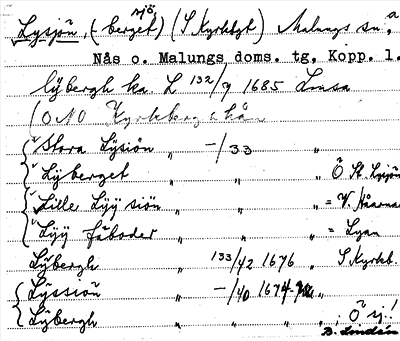 Lysjön, (-berget) sjö (S Kyrkbyt) Malungs sn, a
Nås o. Malungs doms. tg, Kopp. l.
lÿbergh ka. L 132/9 1685 Lousa
(ONO Kyrkberg
{"Stora Lÿsiön " -/33
{"Lÿberget " " " Ö. St. Lysjön
{"Lille Lÿÿ siön " " " = V.
{"Lÿÿ fäboder " " " = Lyan
Lÿbergh " 133/42 1676 S Kyrkb.
{ Lÿssiön " -/40 1674 "
{ Lÿbergh " " " "; Ö sj.!
B. Lindén